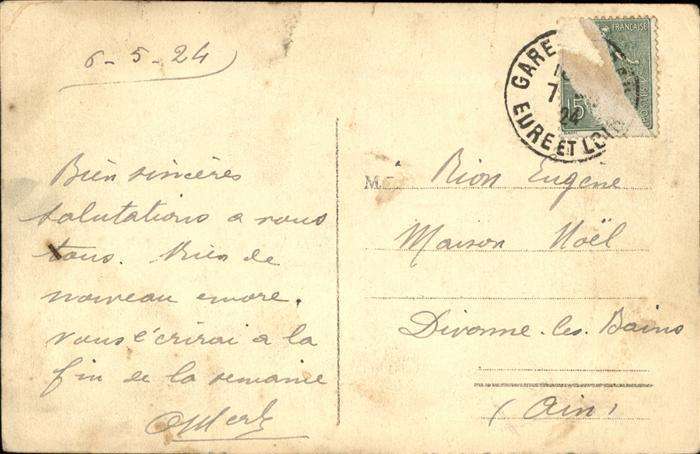 6-5-24
Bien sincères
salutations a vous
tous. Rien de
nouveau encore.
vous écrirai a la
fin de la semaine
FRANÇAISE
15
GARE
7
24
EURE ET LOIR
M
Rion Eugène
Maison Noël
Divonne-les-Bains
(Ain)